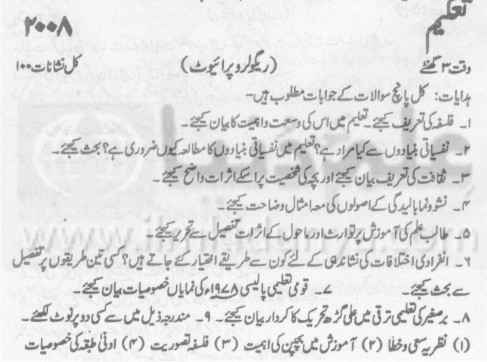 تعلیم
۲۰۰۸
وقت ۳ گھنٹے (ریگولر و پرائیوٹ) کل نشانات ۱۰۰
ہدایات: کل پانچ سوالات کے جوابات مطلوب ہیں۔
۱۔ فلسفہ کی تعریف کیجئے۔ تعلیم میں اس کی وسعت و اہمیت کا بیان کیجئے۔
۲۔ نفسیاتی بنیادوں سے کیا مراد ہے؟ تعلیم میں نفسیاتی بنیادوں کا مطالعہ کیوں ضروری ہے؟ بحث کیجئے۔
۳۔ ثقافت کی تعریف بیان کیجئے اور بچہ کی شخصیت پر اسکے اثرات واضح کیجئے۔
۴۔ نشوونما بالیدگی کے اصولوں کی معہ امثال وضاحت کیجئے۔
۵۔ طالب علم کی آموزش پر توارث اور ماحول کے اثرات تفصیل سے تحریر کیجئے۔
۶۔ انفرادی اختلافات کی نشاندہی کے لئے کون سے طریقے اختیار کئے جاتے ہیں؟ کسی تین طریقوں پر تفصیل
سے بحث کیجئے۔ ۷۔ قومی تعلیمی پالیسی ۱۹۷۸ء کی نمایاں خصوصیات بیان کیجئے۔
۸۔ برصغیر کی تعلیمی ترقی میں علی گڑھ تحریک کا کردار بیان کیجئے۔ ۹۔ مندرجہ ذیل میں سے کسی دو پر نوٹ لکھئے۔
(۱) نظریہ سعی و خطا (۲) آموزش میں بچپن کی اہمیت (۳) فلسفہ تصوریت (۴) ادنیٰ طبقہ کی خصوصیات